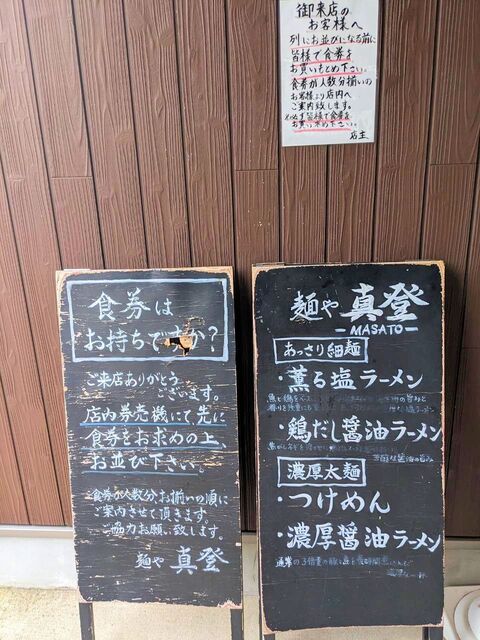 御来店の
お客様へ
列にお並びになる前に
皆様で食券を
お買いもとめ下さい。
食券が人数分揃いの
お客様より店内へ
ご案内致します。
必ず皆様で食券を
お買い求め下さい。
店主
食券は
お持ちですか?
ご来店ありがとう
ございます。
店内券売機にて、先に
食券をお求めの上、
お並び下さい。
食券が人数分、お揃いの順に
ご案内させて頂きます。
ご協力お願い致します。
麺や 真登
麺や 真登
-MASATO-
あっさり細麺
・薫る塩ラーメン
・鶏だし醤油ラーメン
濃厚太麺
・つけめん
・濃厚醤油ラーメン
通常の3倍量の豚と魚を長時間